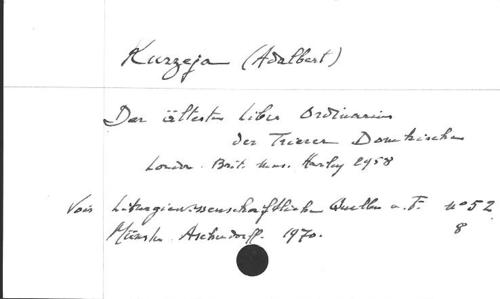 Kurzeja (Adalbert)
Der älteste Liber Ordinarius
der Trierer Domkirche
London. Brit. Mus. Harley 2958
Vois Liturgiewissenschaftliche Quellen u. F. n° 52
Münster. Aschendorff. 1970. 8